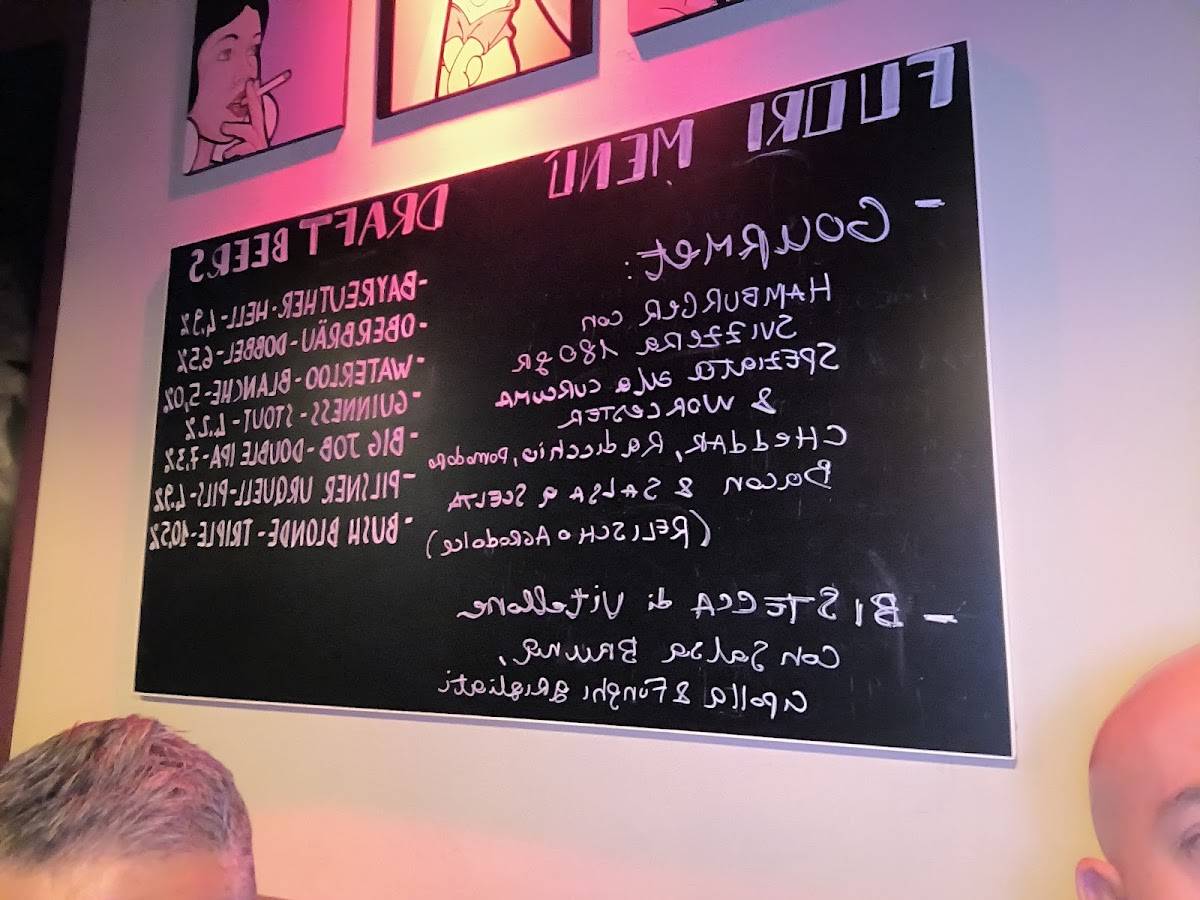 FUORI MENÙ
- GOURMET:
HAMBURGER CON
SVIZZERA 180 gR
SPEZIATA alla CURCUMA
& WORCESTER
CHEddAR, RAdicchio, pomodoro
Bacon & SALSA a SCELTA
(RELISCH o Agrodolce)
- BISTECCA di Vitellone
CON SALSA BRUNA,
cipolla & Funghi gRigliati
DRAFT BEERS
-BAYREUTHER-HELL-4,9%
-OBERBRÄU-DOBBEL-6,5%
-WATERLOO-BLANCHE-5,0%
-GUINNESS-STOUT-4,2%
-BIG JOB-DOUBLE IPA-7,3%
-PILSNER URQUELL-PILS-4,9%
-BUSH BLONDE-TRIPLE-10,5%